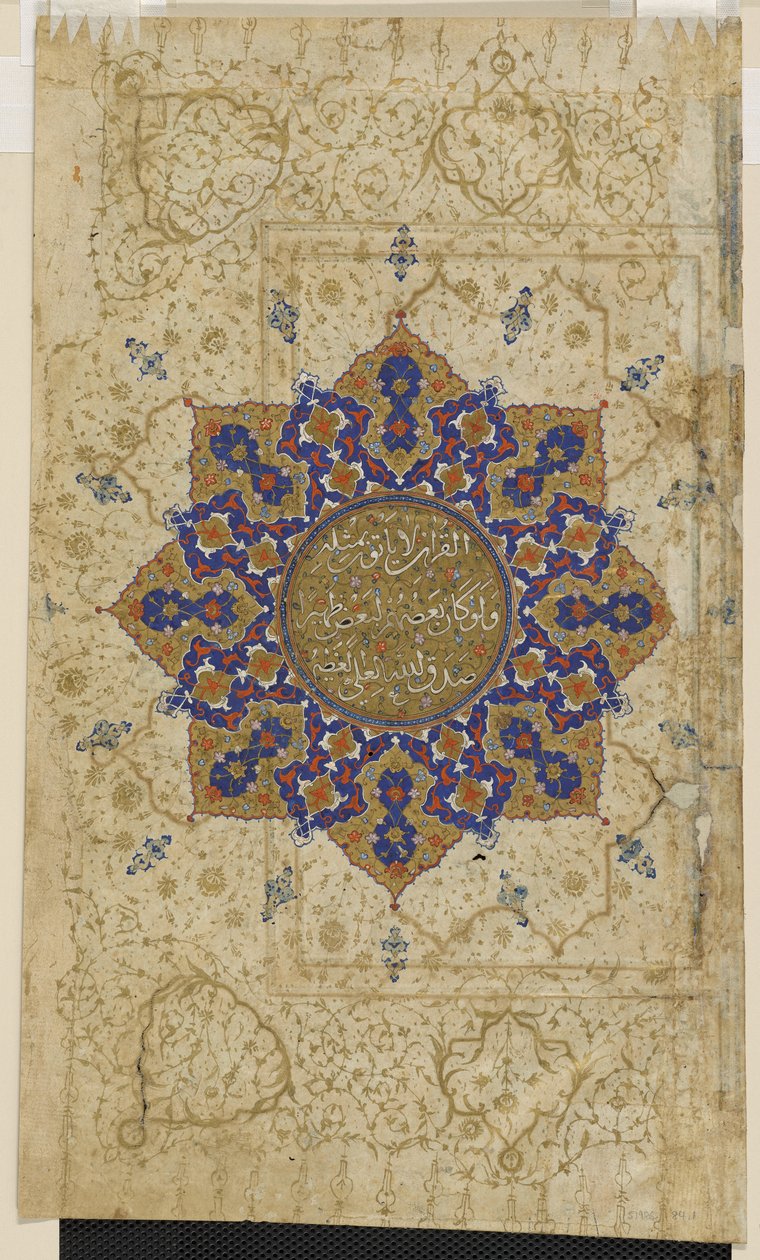 القران لا ياتون بمثله
ولو كان بعضهم لبعض ظهيرا
صدق الله العلي العظيم
S1986. 84.1